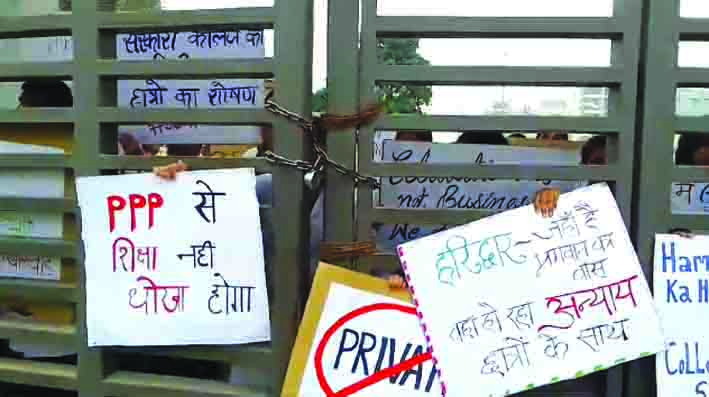 सरकारी कॉलेज का
छात्रों का शोषण
PPP से
शिक्षा नही
धोखा होगा
Education is
not Business
We
PRIVAT
हरिद्वार- जहाँ है
भगवान का
वास
वहा हो रहा अन्याय
छात्रों के साथ
Ham
Ka H
Coll
S